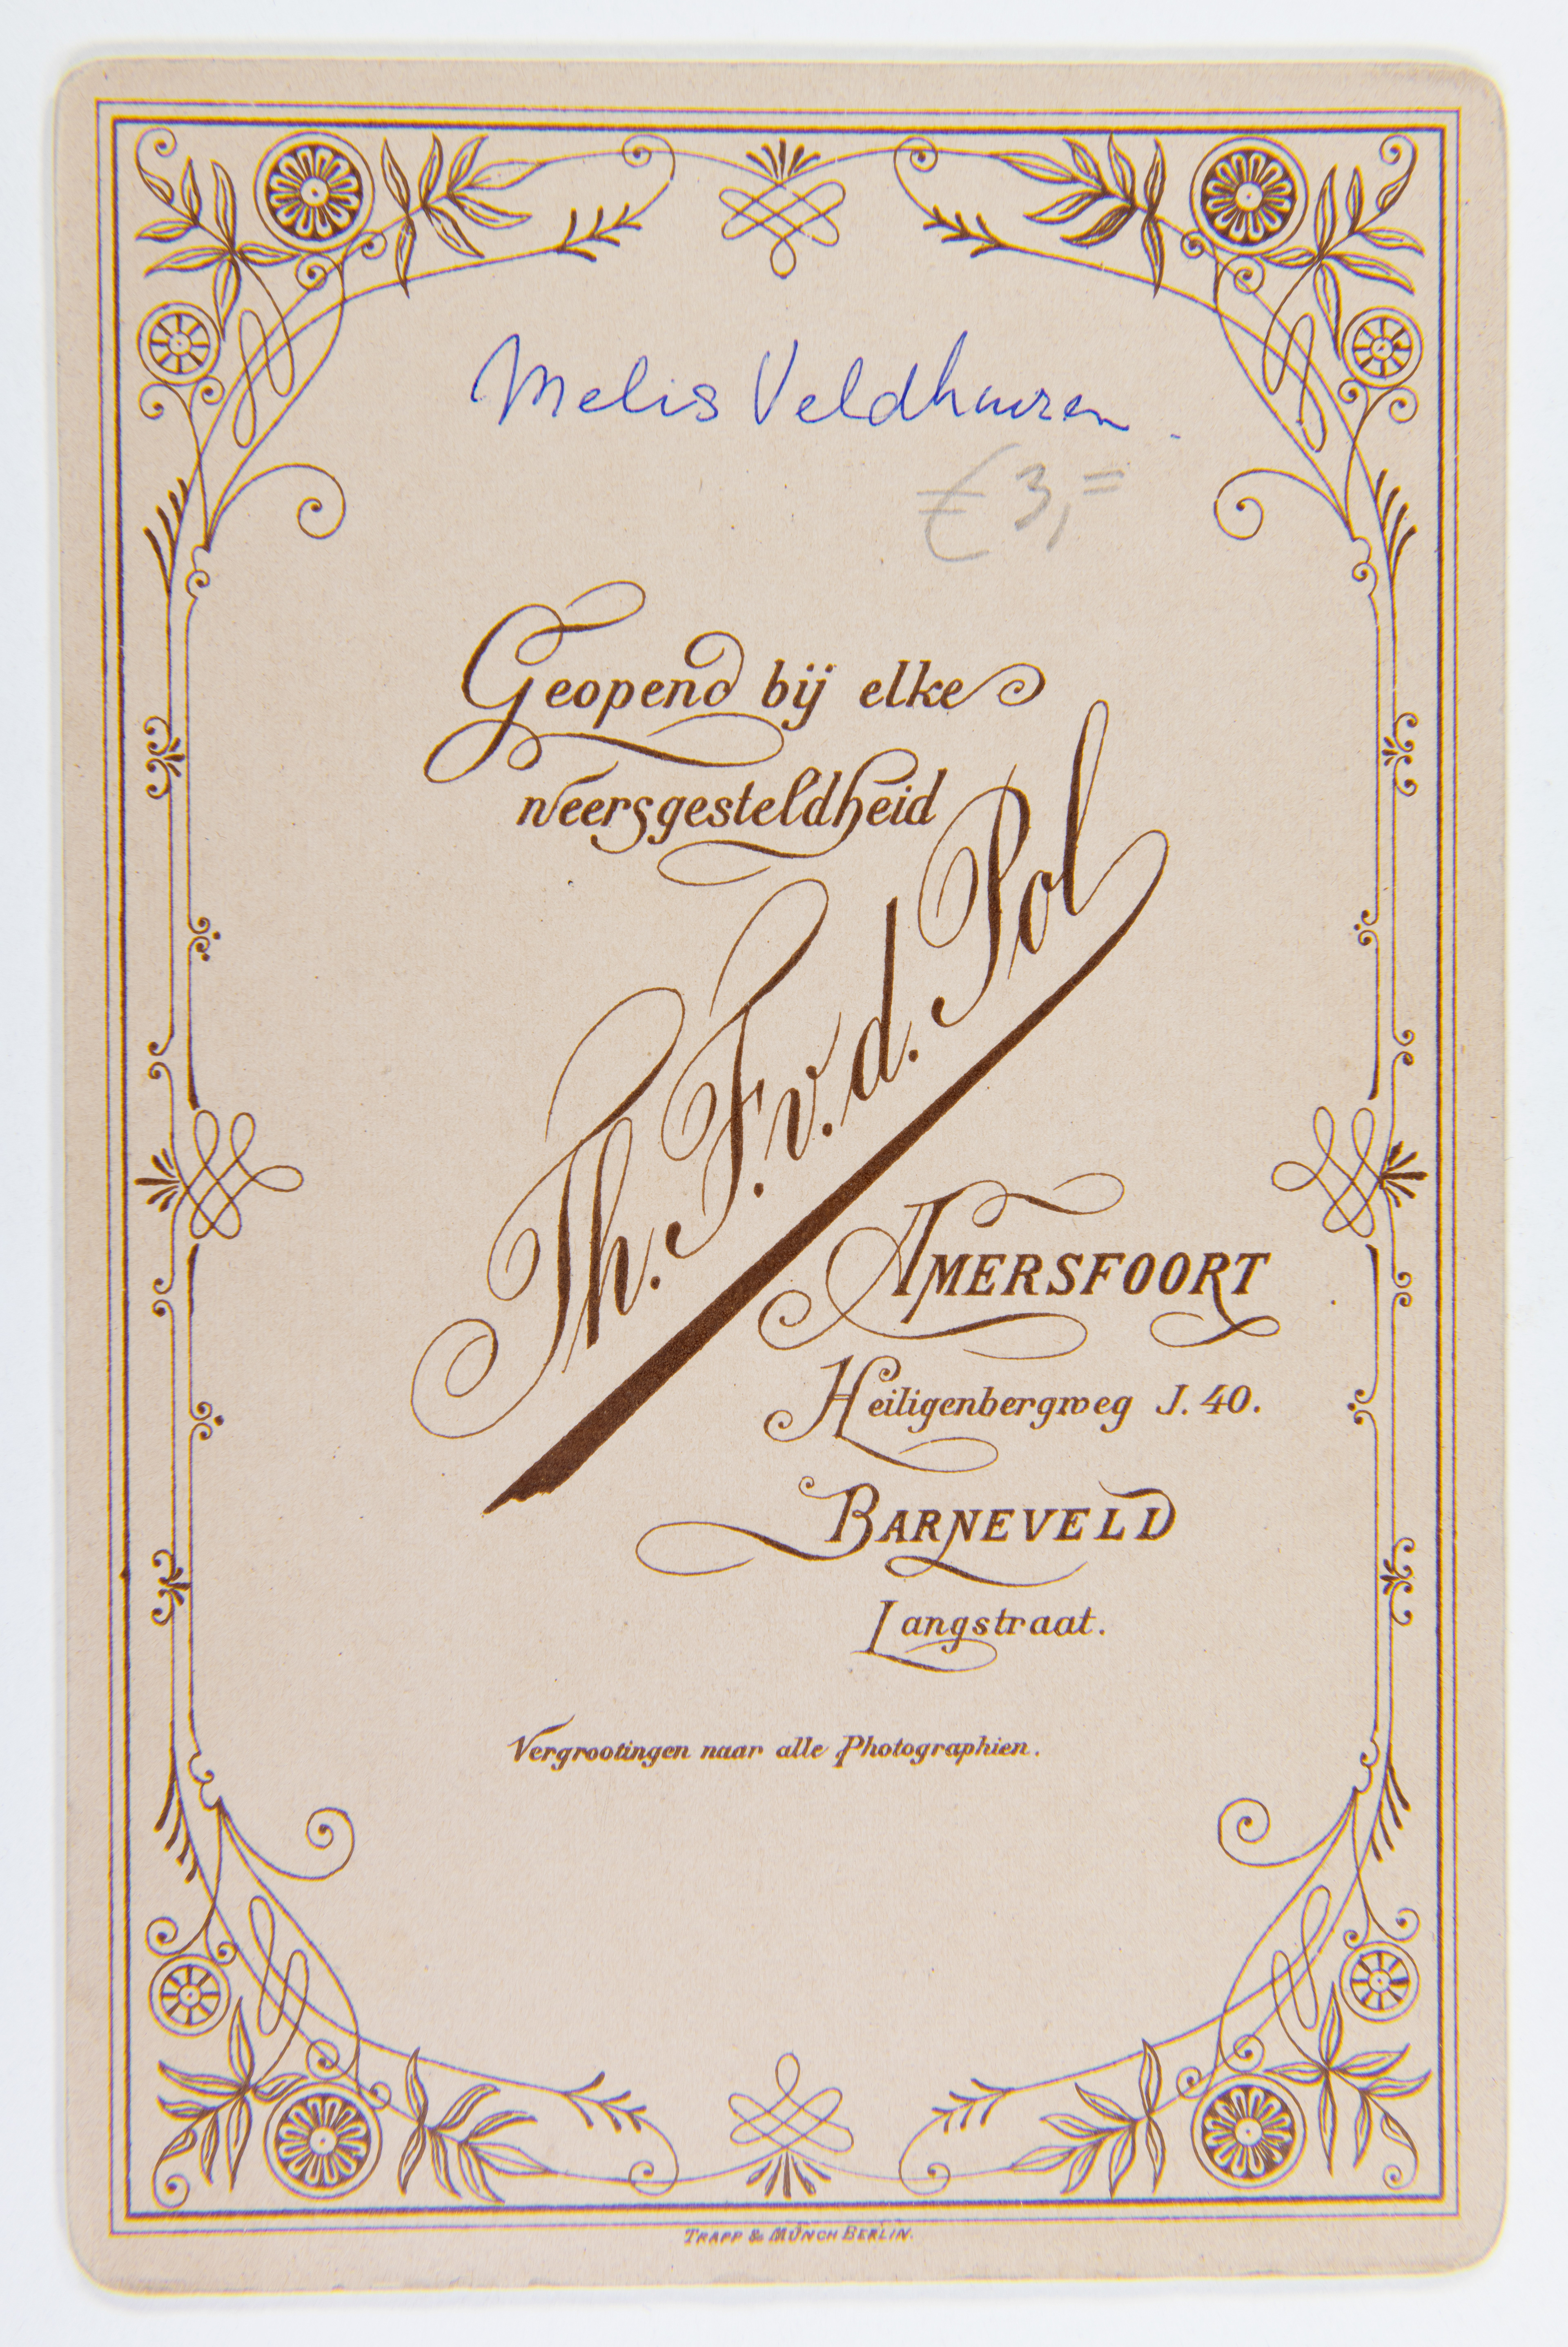 Melis Veldhuizen.
€ 3,=
Geopend bij elke
weersgesteldheid
Th. F. v. d. Pol
AMERSFOORT
Heiligenbergweg J. 40.
BARNEVELD
Langstraat.
Vergrootingen naar alle Photographien.
TRAPP & MÜNCH BERLIN.